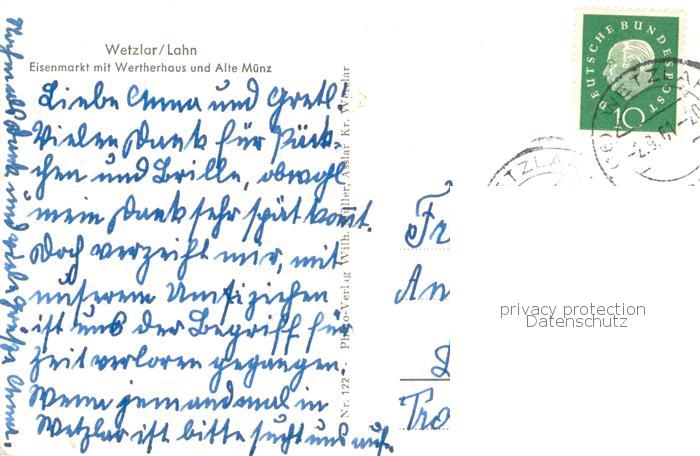 Wetzlar/Lahn
Eisenmarkt mit Wertherhaus und Alte Münz
Liebe Anna und Gretl.
Vielen Dank für Päck-
chen und Brille, obwohl
mein Dank sehr spät komt.
Doch verzeiht mir, mit
unserem Umsiziehen
ist uns der Begriff für
Zeit verloren gegangen.
Wenn jemand mal in
Wetzlar ist bitte sucht uns auf.
Nochmals Dank und viele Grüße
Nr. 122 - Photo-Verlag Wilh. Asslar Kr. Wetzlar
DEUTSCHE BUNDESPOST
10
WETZLAR
-2.9.61-20
ETZLAR
Fr
An
Tro
privacy protection
Datenschutz